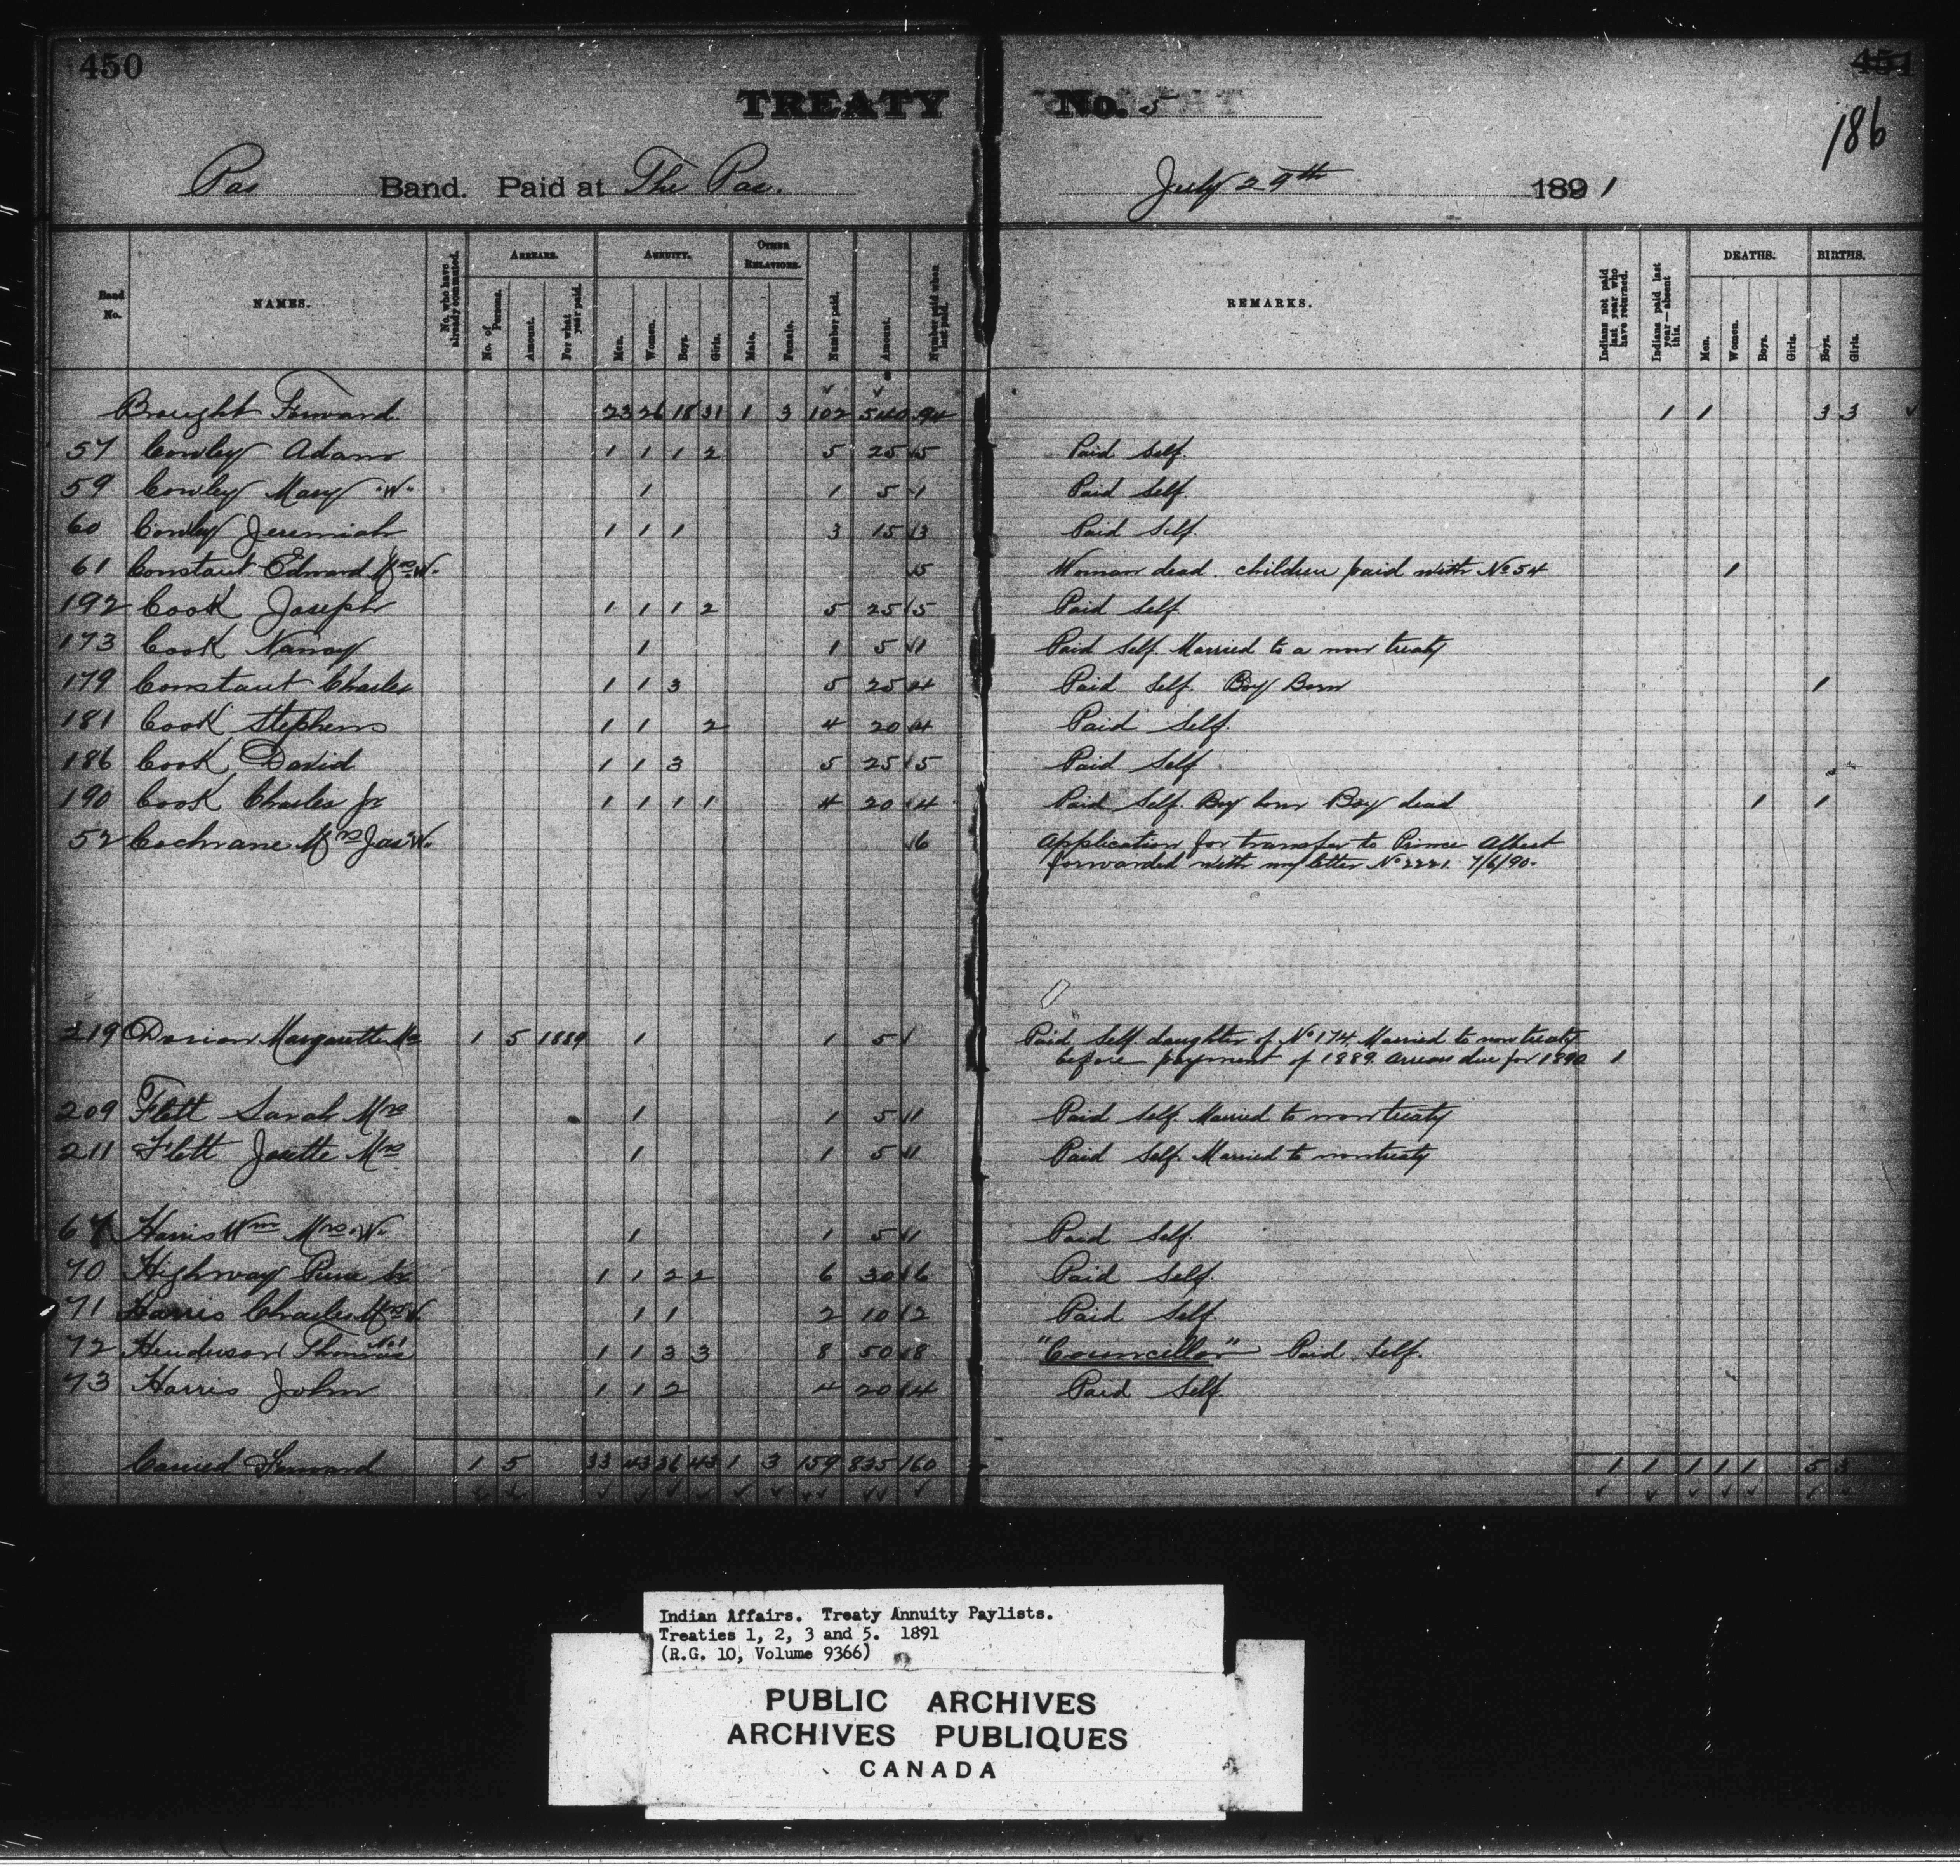 450
451
186
TREATY No. 5
Pas Band. Paid at The Pas. July 29th 1891
Band No. NAMES. No. who have already commuted. ARREARS. No. of Persons. Amount. For what year paid. ANNUITY. Men. Women. Boys. Girls. OTHER RELATIONS. Male. Female. Number paid. Amount. Number paid when last paid. REMARKS. Indians not paid last year who have returned. Indians paid last year—absent this. DEATHS. Men. Women. Boys. Girls. BIRTHS. Boys. Girls.
Brought Forward 23 26 18 31 1 3 102 540 94 1 1 3 3
57 Cowley Adam 1 1 1 2 5 25 5 Paid Self.
59 Cowley Mary "W" 1 1 5 1 Paid Self.
60 Cowley Jeremiah 1 1 1 3 15 3 Paid Self.
61 Constant Edward Mrs W. 5 Woman dead. children paid with No 54 1
192 Cook Joseph 1 1 1 2 5 25 5 Paid Self.
173 Cook Nancy 1 1 5 1 Paid Self. Married to a non treaty
179 Constant Charles 1 1 3 5 25 4 Paid Self. Boy Born 1
181 Cook Stephens 1 1 2 4 20 4 Paid Self.
186 Cook David 1 1 3 5 25 5 Paid Self
190 Cook Charles Jr 1 1 1 1 4 20 4 Paid Self. Boy born Boy dead 1 1
52 Cochrane Mrs Jas W. 6 Application for transfer to Prince Albert
forwarded with my letter No 2221. 7/6/90.
219 Dorion Margarette Mrs 1 5 1889 1 1 5 1 Paid Self daughter of No 174. Married to non treaty
before payment of 1889. Arrears due for 1890 1
209 Flett Sarah Mrs 1 1 5 1 Paid Self Married to non treaty
211 Flett Josette Mrs 1 1 5 1 Paid Self. Married to non treaty
67 Harris Wm Mrs W. 1 1 5 1 Paid Self.
70 Highway Pierre Sr 1 1 2 2 6 30 6 Paid Self.
71 Harris Charles Mrs W. 1 1 2 10 2 Paid Self.
72 Henderson Thomas No 1 1 1 3 3 8 50 8 "Councillor" Paid Self.
73 Harris John 1 1 2 4 20 4 Paid Self.
Carried Forward 1 5 33 43 36 43 1 3 159 835 160 1 1 1 1 1 5 3
Indian Affairs. Treaty Annuity Paylists.
Treaties 1, 2, 3 and 5. 1891
(R.G. 10, Volume 9366)
PUBLIC ARCHIVES
ARCHIVES PUBLIQUES
CANADA